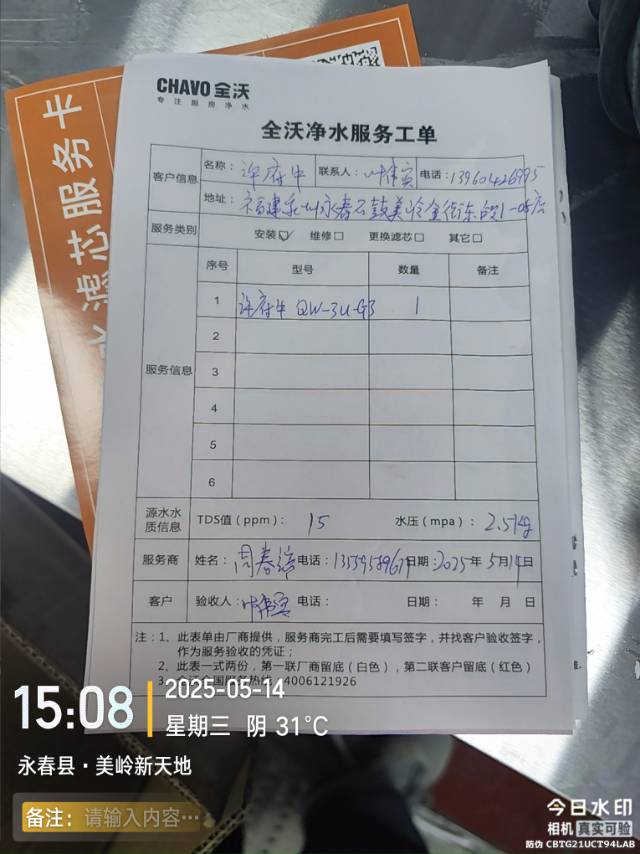 水滤芯服务卡
CHAVO 全沃
专注厨房净水
全沃净水服务工单
客户信息 名称：许府牛 联系人：叶伟宾 电话：13960426995
地址：福建泉州永春石鼓美岭金街
服务类别 安装☑ 维修□ 更换滤芯□ 其它□
服务信息 序号 型号 数量 备注
1 许府牛 QW-3U-G3 1
2
3
4
5
6
源水水质信息 TDS值（ppm）：15 水压（mpa）：2.5kg
服务商 姓名：周春 电话： 日期：2025年5月14日
客户 验收人：叶伟宾 电话： 日期： 年 月 日
注：1、此表单由厂商提供，服务商完工后需要填写签字，并找客户验收签字，
作为服务验收的凭证；
2、此表一式两份，第一联厂商留底（白色），第二联客户留底（红色）
3、 4006121926
15:08
2025-05-14
星期三 阴 31°C
永春县·美岭新天地
备注： 请输入内容…
今日水印
相机 真实可验
防伪 CBTG21UCT94LAB